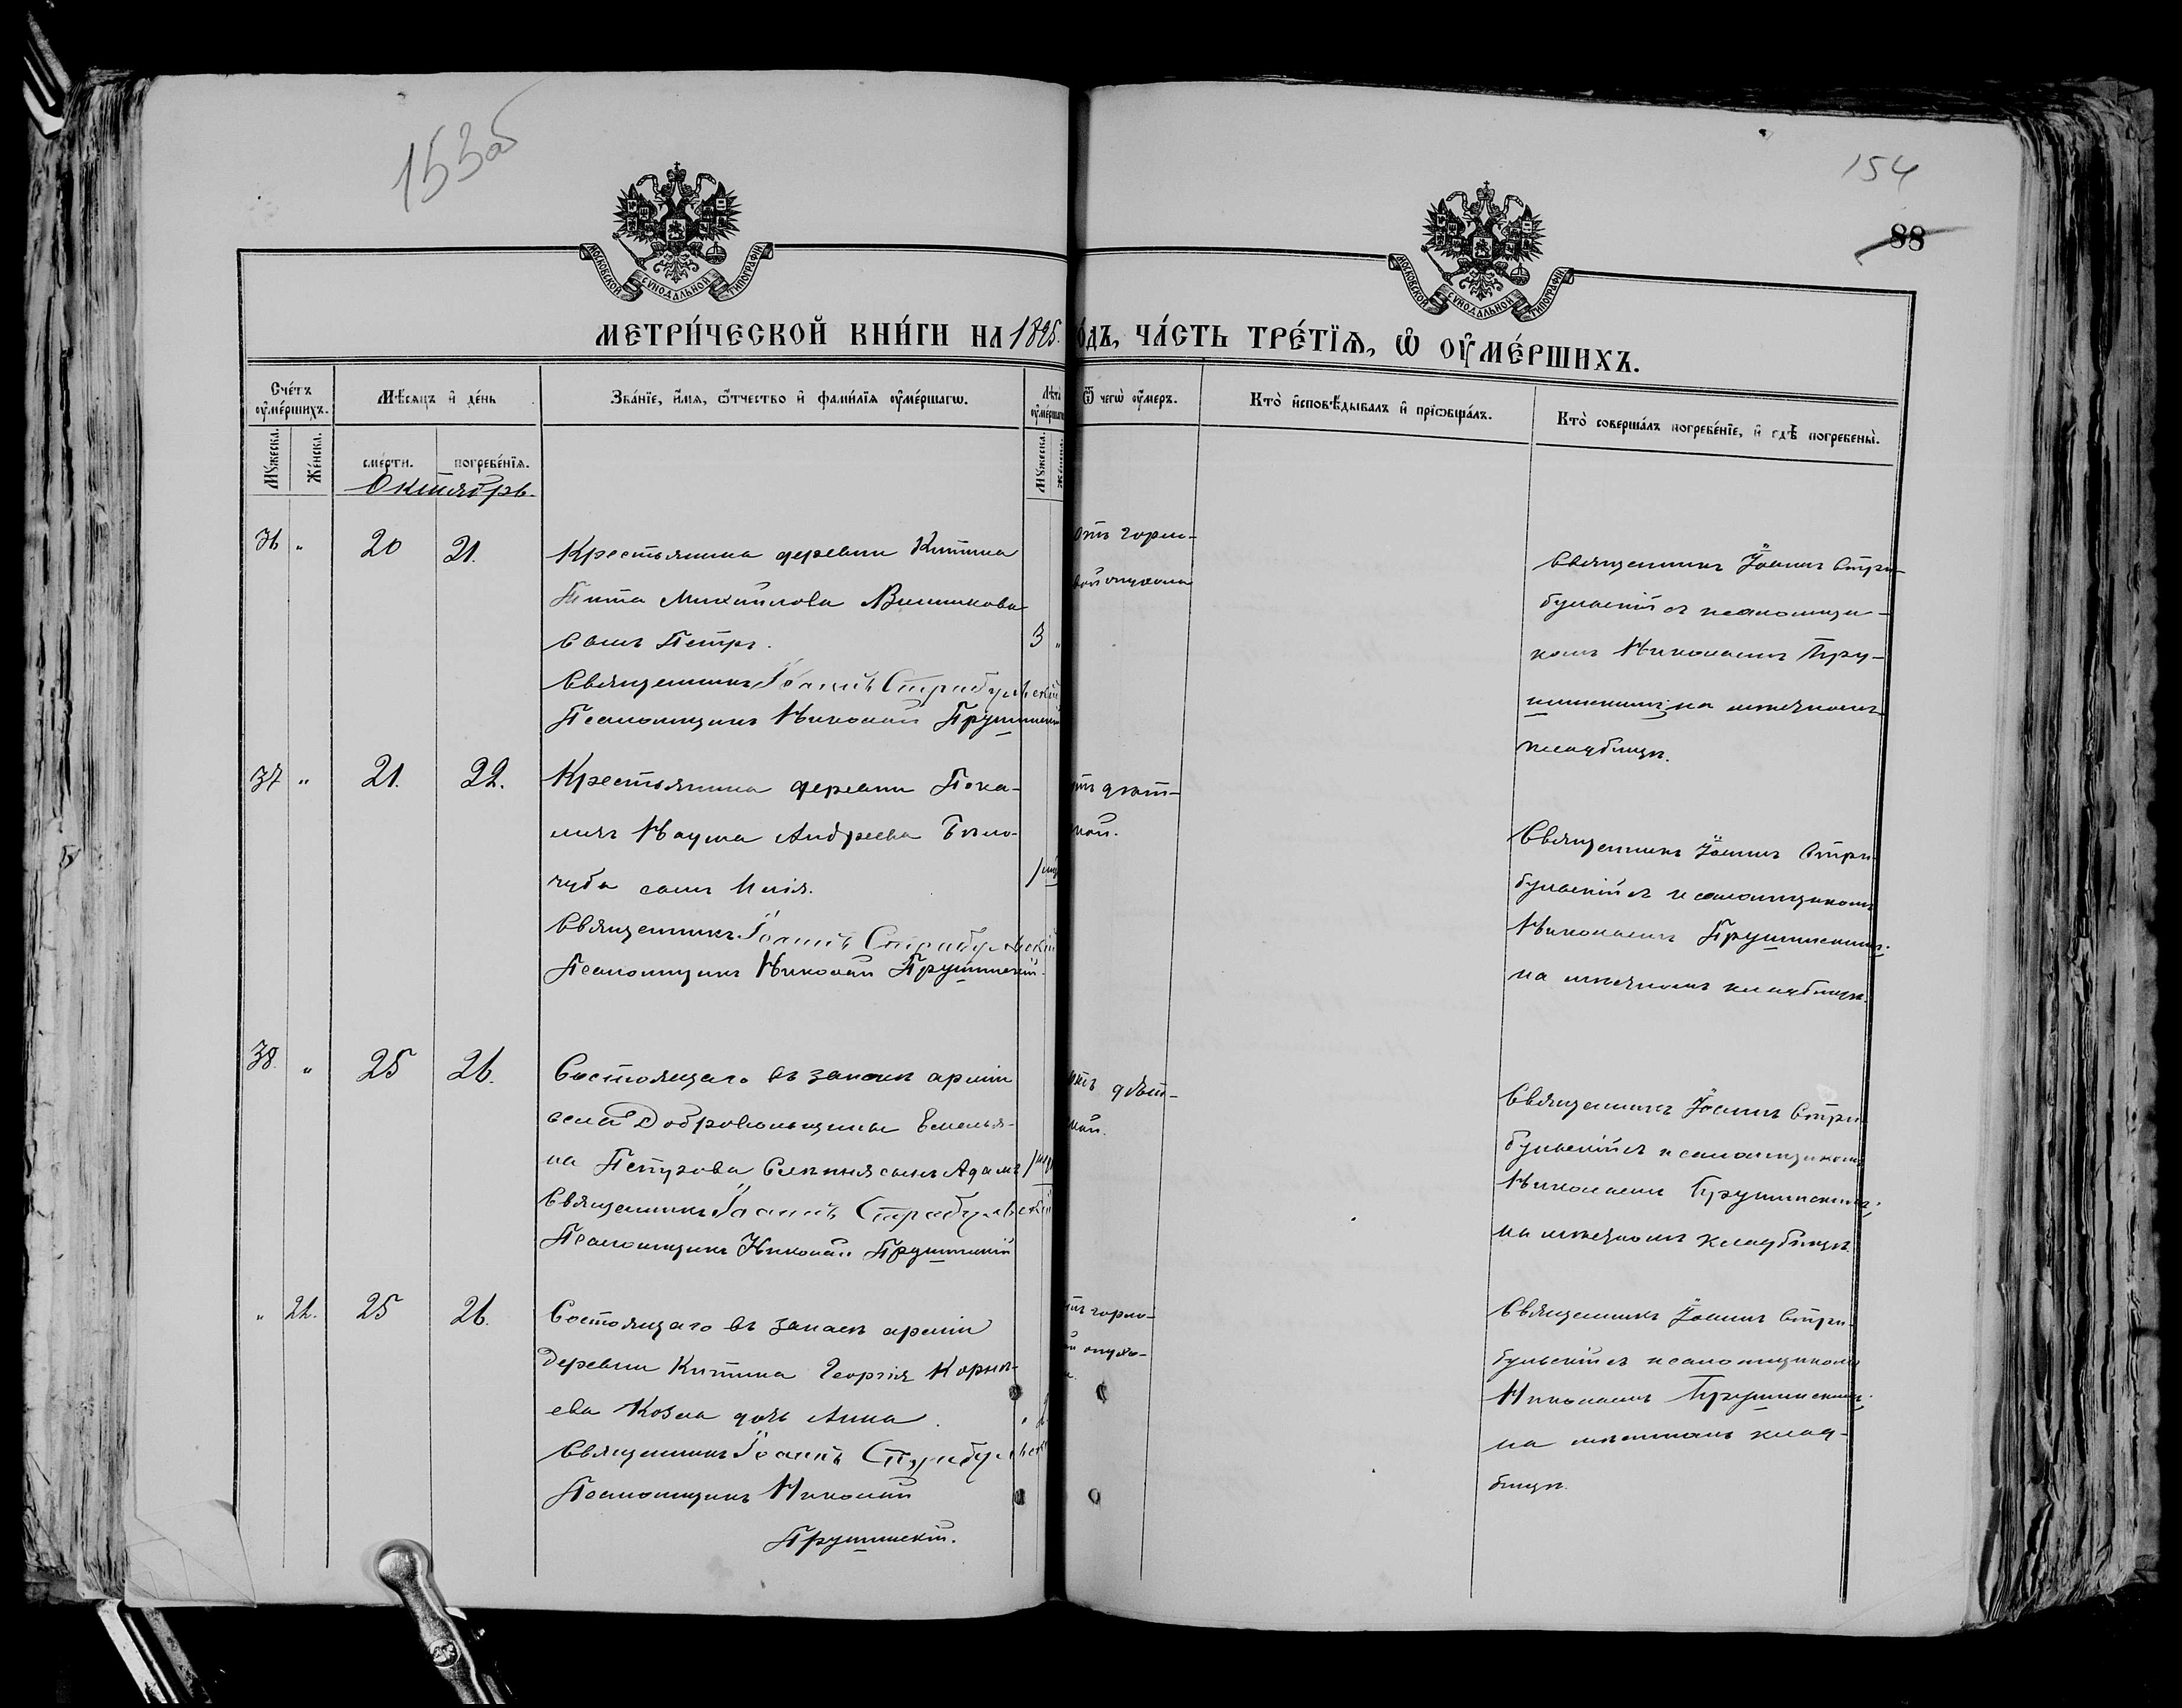 153об
154
88
МОСКОВСКОЙ СѴНОДАЛЬНОЙ ТИПОГРАФІИ
МОСКОВСКОЙ СѴНОДАЛЬНОЙ ТИПОГРАФІИ
МЕТРИ́ЧЕСКОЙ КНИ́ГИ НА 1895. О́ДЪ, ЧА́СТЬ ТРЕ́ТЇѦ, Ѡ҆ ОУ҆МЕ́РШИХЪ.
Сче́тъ оу҆ме́ршихъ.
Мѣ́сяцъ и҆ де́нь
Зва́нїе, и҆́мя, ѻ҆́тчество и҆ фами́лїя оу҆ме́ршагѡ.
Лѣта̀ оу҆ме́ршагѡ
Ѿ чегѡ̀ оу҆́меръ.
Кто̀ и҆сповѣ́дывалъ и҆ прїѡбща́лъ.
Кто̀ соверша́лъ погребе́нїе, и҆ гдѣ̀ погребены̀.
Мꙋ́жеска.
Же́нска.
сме́рти.
погребе́нїя.
Мꙋ́жеска.
Октябрь.
36 " 20 21.
Крестьянина деревни Китина
Тита Михайлова Вишнкова
сынъ Петръ.
3 "
Священникъ Іоаннъ Стрибульскій
Псаломщикъ Николай Прушинскій
отъ горло-
вой опухоли
Священникъ Іоаннъ Стри-
бульскій съ псаломщи-
комъ Николаемъ Пру-
шинскимъ; на мѣстномъ
кладбищѣ.
37 " 21. 22.
Крестьянина деревни Пока-
лизъ Наума Андреева Бѣло-
чуба сынъ Илія.
Священникъ Іоаннъ Стрибульскій
Псаломщикъ Николай Прушинскій.
отъ дѣтт-
ской.
Священникъ Іоаннъ Стри-
бульскій съ псаломщикомъ
Николаемъ Прушинскимъ;
на мѣстномъ кладбищѣ.
38. " 25 26.
Состоящаго въ запасѣ арміи
села Добровольщины Емелья-
на Петрова сынъ Адамъ
Священникъ Іоаннъ Стрибульскій
Псаломщикъ Николай Прушинскій
отъ дѣт-
ской.
Священникъ Іоаннъ Стри-
бульскій съ псаломщикомъ
Николаемъ Прушинскимъ;
на мѣстномъ кладбищѣ.
" 22. 25 26.
Состоящаго въ запасѣ арміи
деревни Китина Георгія Корнѣ-
ева Козла дочь Анна.
Священникъ Іоаннъ Стрибульскій
Псаломщикъ Николай
Прушинскій.
отъ горло-
вой опухо-
ли.
Священникъ Іоаннъ Стри-
бульскій съ псаломщикомъ
Николаемъ Прушинскимъ;
на мѣстномъ клад-
бищѣ.